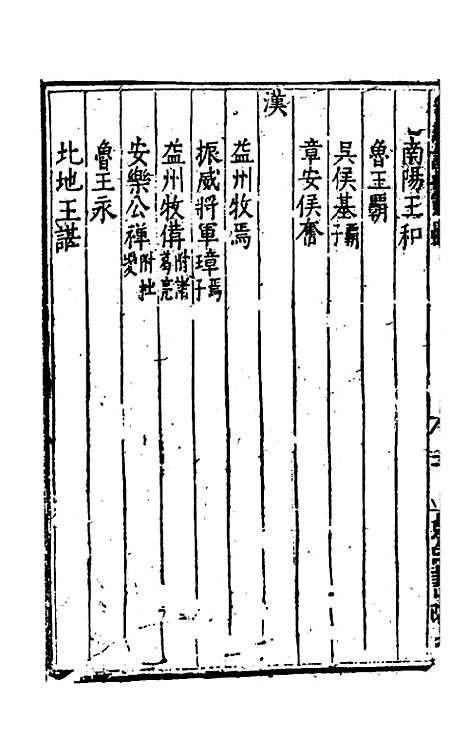 南陽王和
魯王霸
吳侯基霸子
章安侯奮
漢
益州牧焉
振威將軍璋焉子
益州牧備附諸葛亮
安樂公禪附
魯王永
北地王諶